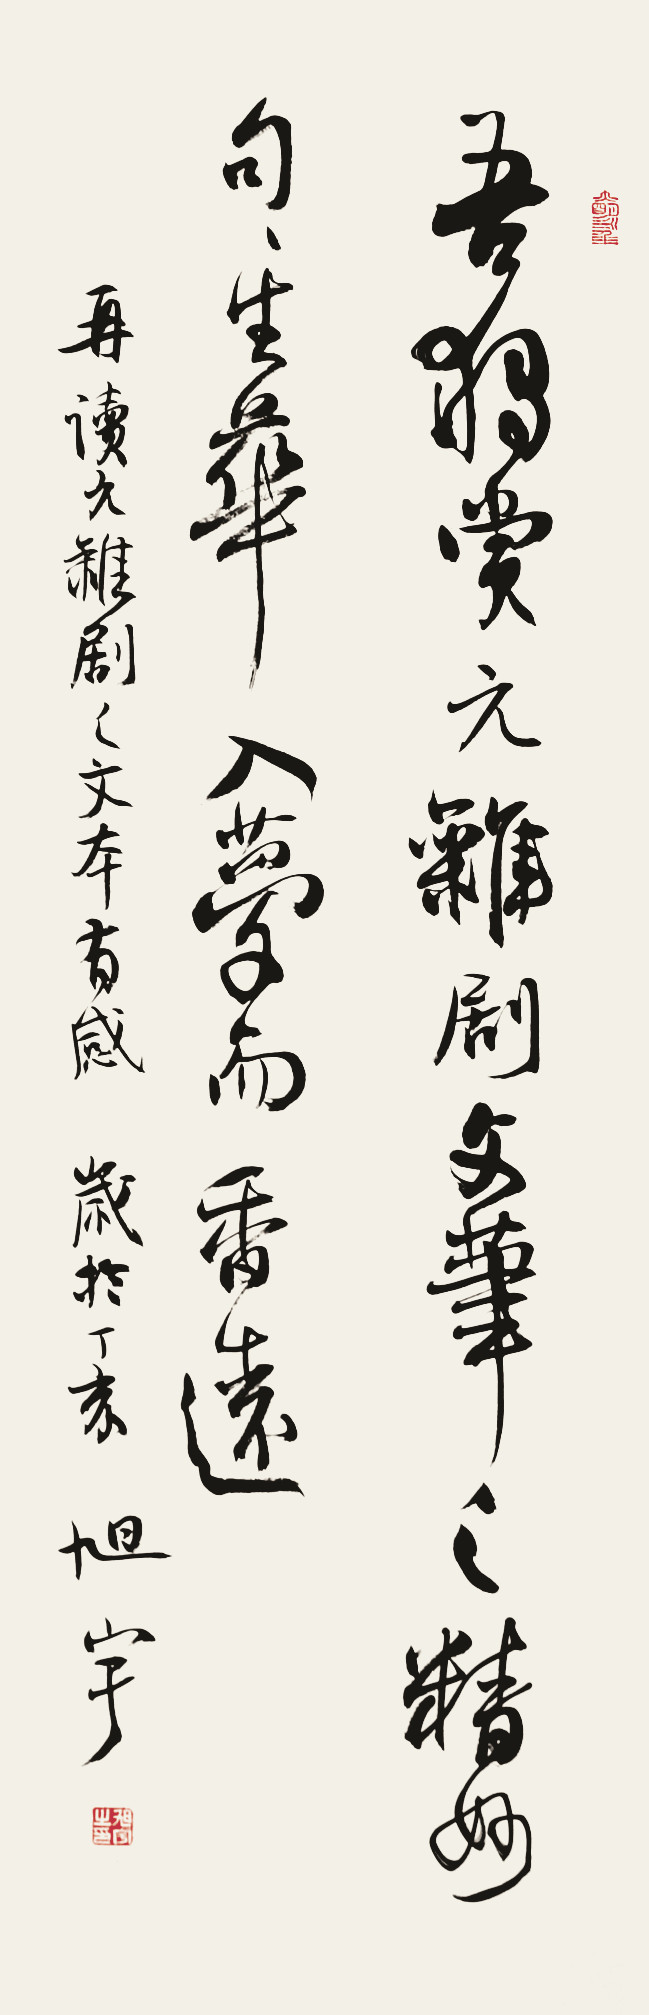 吾獨賞元雜剧文華之精妙
句、生華入夢而香遠
再讀元雜剧之文本有感 歲於丁亥 旭宇